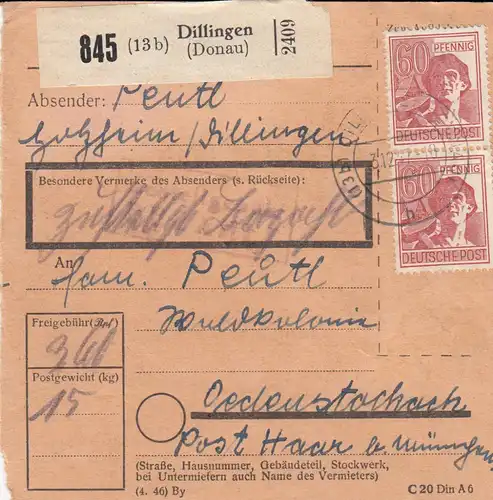 845 (13b) Dillingen
(Donau)
2409
60 PFENNIG
DEUTSCHE POST
60 PFENNIG
DEUTSCHE POST
Absender: Peutl
Holzheim/Dillingen
Besondere Vermerke des Absenders (s. Rückseite):
An
Fam. Peutl
Waldkolonie
Freigebühr (Rpf)
Postgewicht (kg)
15
Oedenstockach
Post Haar b. München
(Straße, Hausnummer, Gebäudeteil, Stockwerk,
bei Untermietern auch Name des Vermieters)
(4. 46) By
C 20 Din A 6